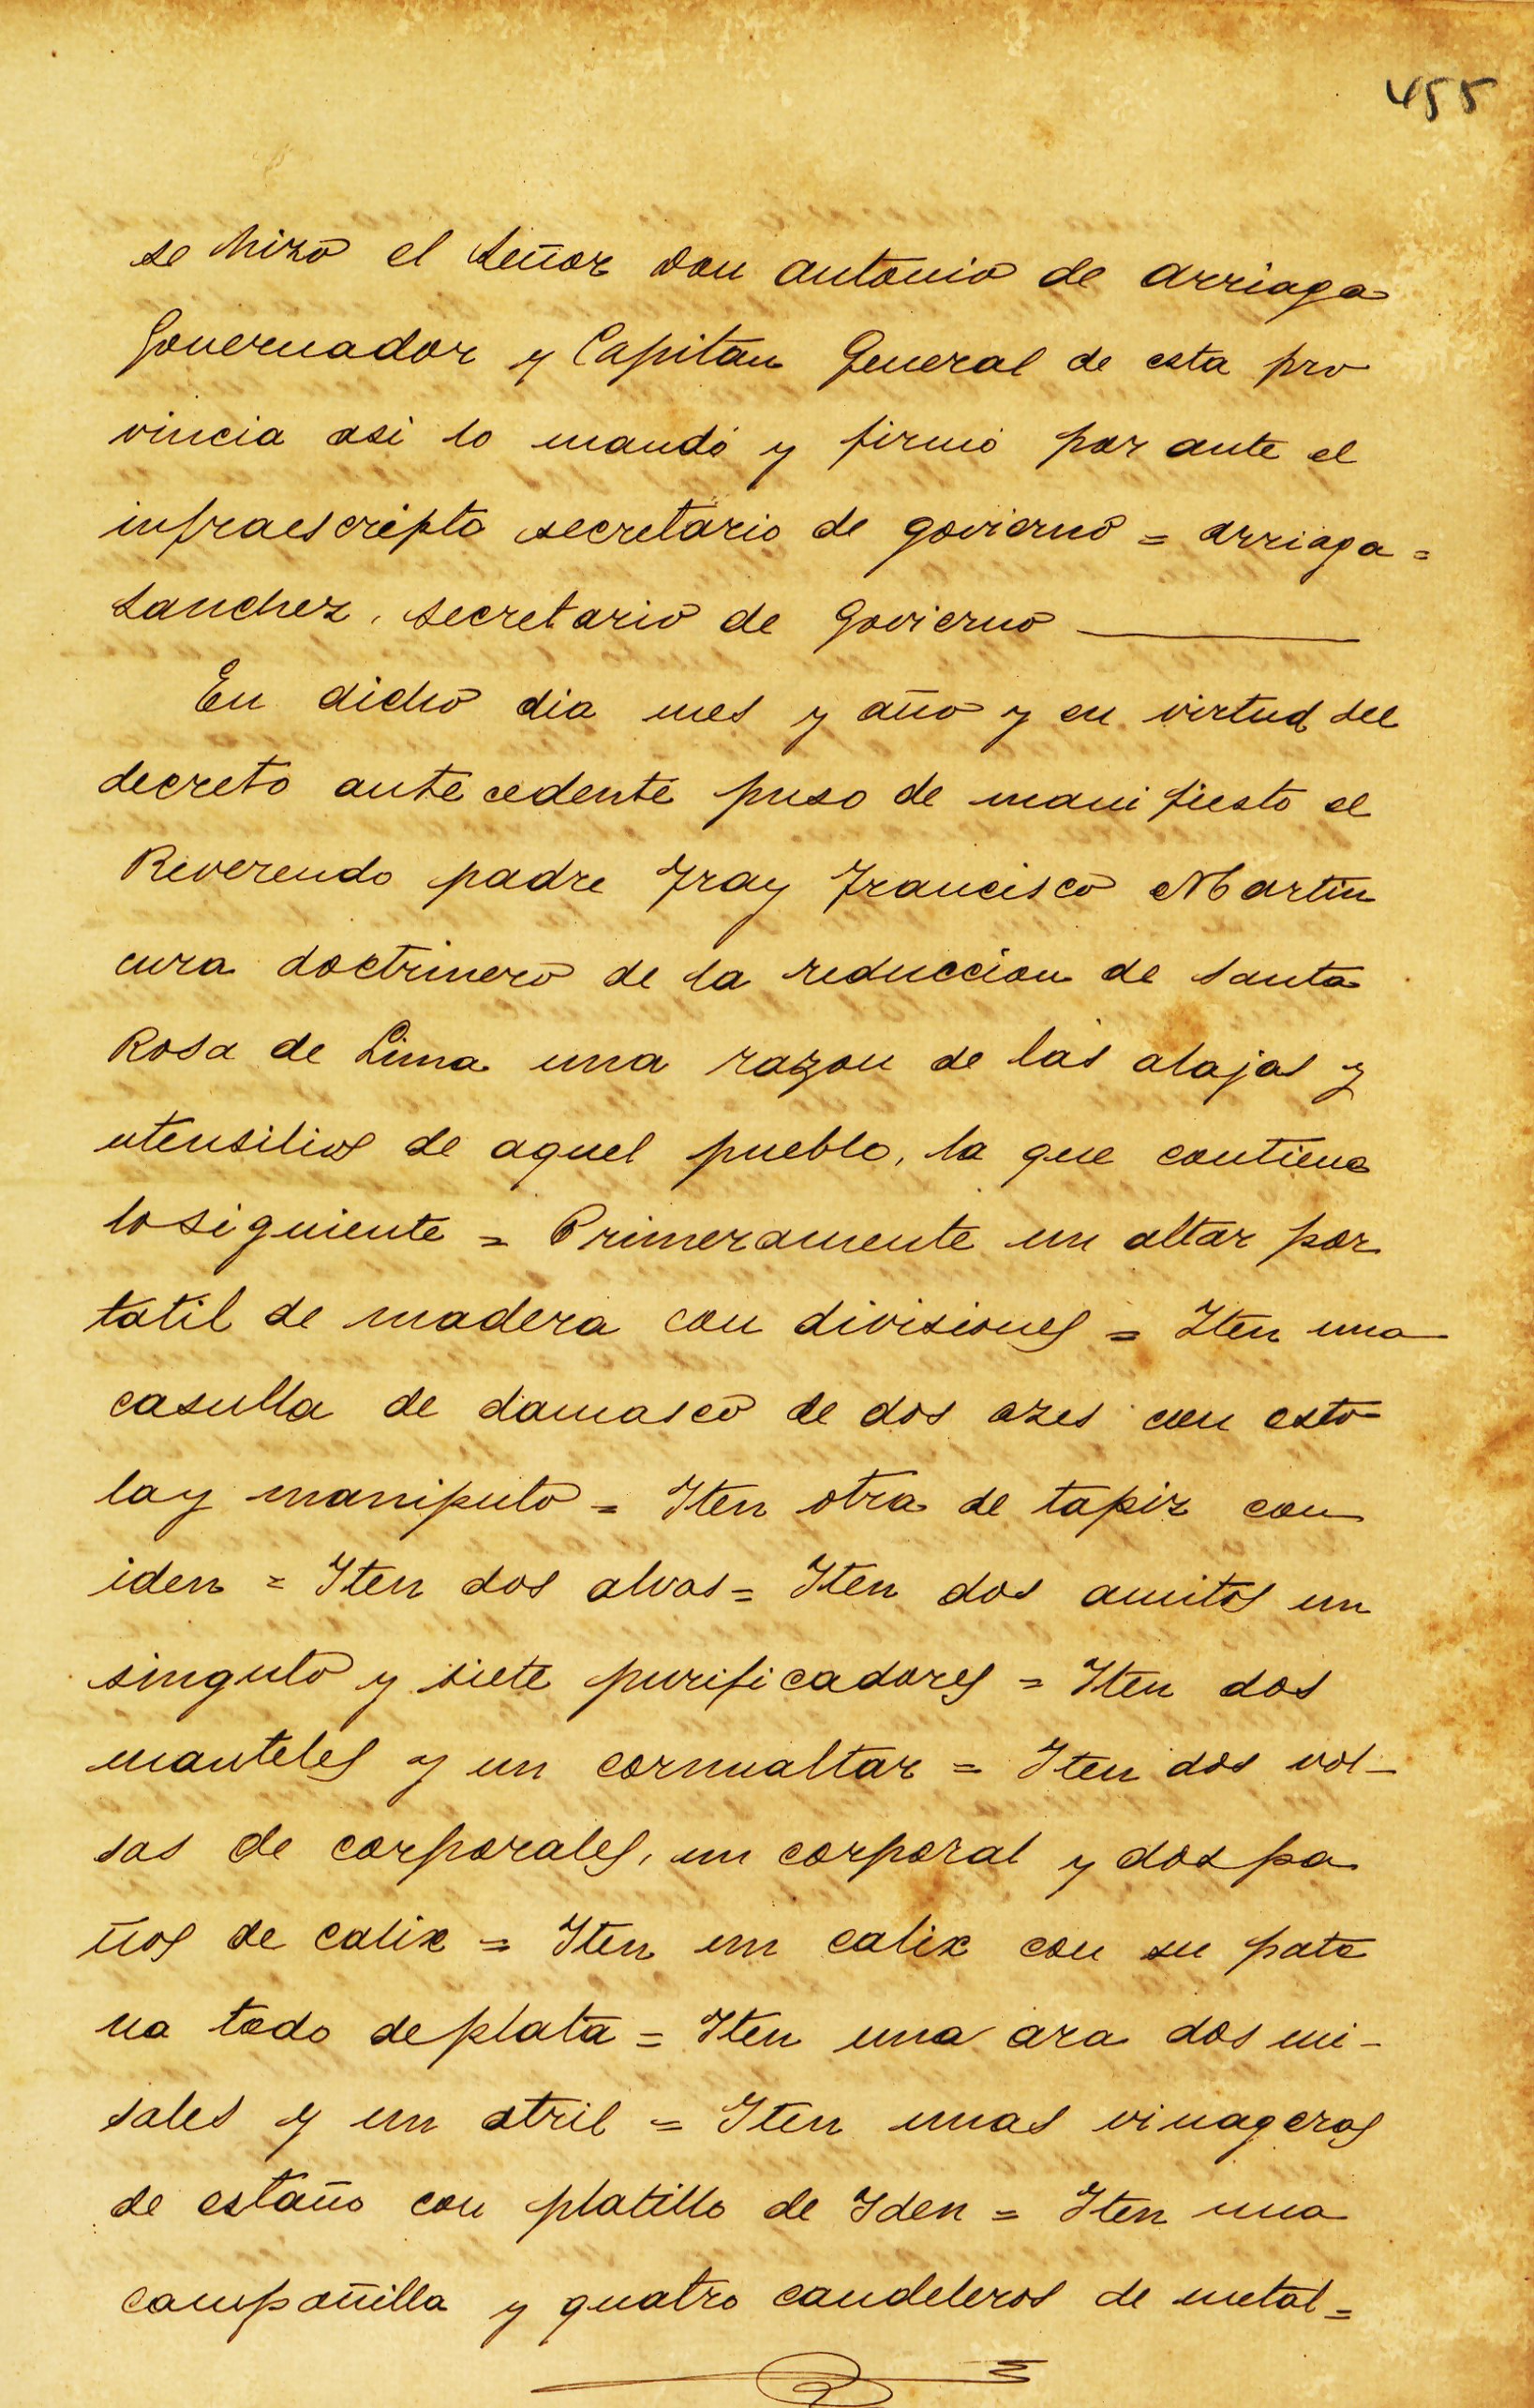 455
se hizo el señor don antonio de arriaga
Governador y Capitan General de esta pro
vincia asi lo mandó y firmó por ante el
infraescripto secretario de govierno = arriaga =
sanchez, secretario de Govierno
En dicho dia mes y año y en virtud del
decreto antecedente puso de manifiesto el
Reverendo padre Fray Francisco Martin
cura doctrinero de la reduccion de santa
Rosa de Lima una razon de las alajas y
utensilios de aquel pueblo, la que contiene
lo siguiente = Primeramente un altar por
tatil de madera con divisiones = Iten una
casulla de damasco de dos azes con esto
la y manipulo = Iten otra de tapiz con
iden = Iten dos alvas = Iten dos amitos un
singulo y siete purificadores = Iten dos
manteles y un cornualtar = Iten dos vol-
sas de corporales, un corporal y dos pa
ños de calix = Iten un calix con su pate
na todo de plata = Iten una ara dos mi-
sales y un atril = Iten unas vinageras
de estaño con platillo de Iden = Iten una
campañilla y quatro candeleros de metal =